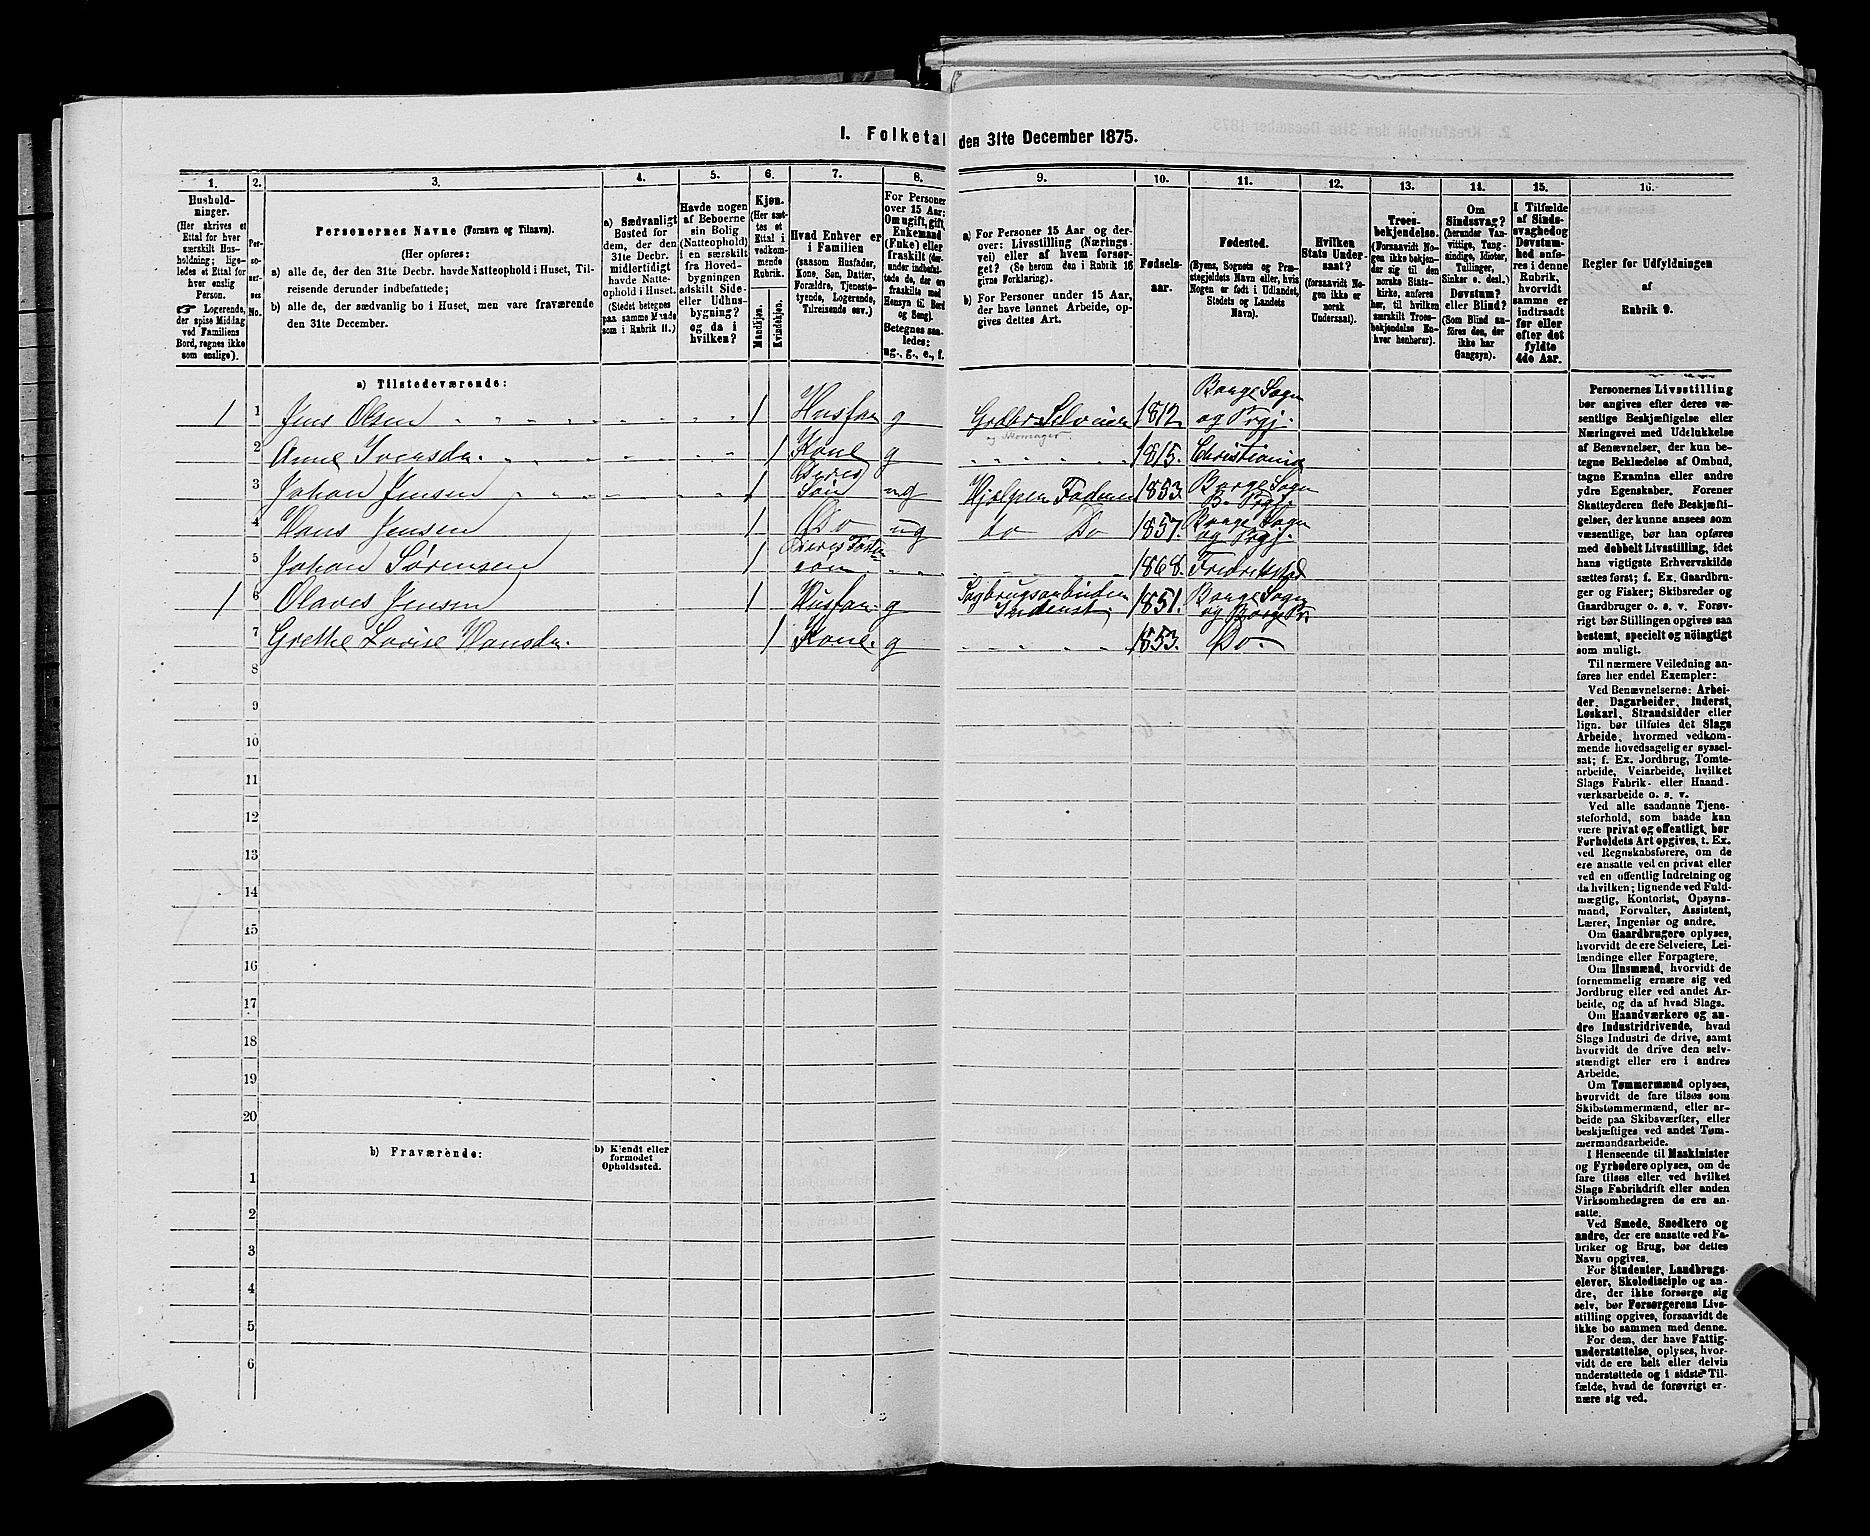 I. Folketal den 31te December 1875.
1.
2.
3.
4.
5.
6.
7.
8.
9.
10.
11.
12.
13.
14.
15.
16.
Hushold-
ninger.
(Her skrives et
Ettal for hver
særskilt Hus-
holdning; lige-
ledes et Ettal for
hver enslig
Person.
Logerende,
der spise Middag
ved Familiens
Bord, regnes ikke
som enslige).
Per-
so-
ner-
nes
No.
Personernes Navne (Fornavn og Tilnavn).
(Her opføres:
a) alle de, der den 31te Decbr. havde Natteophold i Huset, Til-
reisende derunder indbefattede;
b) alle de, der sædvanlig bo i Huset, men vare fraværende
den 31te December.
a) Sædvanligt
Bosted for
dem, der den
31te Decbr.
midlertidigt
havde Natte-
ophold i Huset.
(Stedet betegnes
paa samme Maade
som i Rubrik 11.)
Havde nogen
af Beboerne
sin Bolig
(Natteophold)
i en særskilt
fra Hoved-
bygningen
adskilt Side-
eller Udhus-
bygning?
og da i
hvilken?
Kjøn.
(Her sæt-
tes et
Ettal i
vedkom-
mende
Rubrik.
Mandkjøn.
Kvindekjøn.
Hvad Enhver er
i Familien
(saasom Husfader,
Kone, Søn, Datter,
Forældre, Tjeneste-
tyende, Logerende,
Tilreisende osv.)
For Personer
over 15 Aar:
Om ugift, gift,
Enkemand
(Enke) eller
fraskilt (der-
under indbefat-
tede de, der ere
fraskilte med
Hensyn til Bord
og Seng).
Betegnes saa-
ledes:
ug., g., e., f.
a) For Personer 15 Aar og der-
over: Livsstilling (Nærings-
vei) eller af hvem forsør-
get? (Se herom den i Rubrik 16
givne Forklaring).
b) For Personer under 15 Aar,
der have lønnet Arbeide, op-
gives dettes Art.
Fødsels-
aar.
Fødested.
(Byens, Sognets og Præ-
stegjeldets Navn eller, hvis
Nogen er født i Udlandet,
Stedets og Landets
Navn).
Hvilken
Stats Under-
saat?
(forsaavidt No-
gen ikke er
norsk
Undersaat).
Troes-
bekjendelse.
(Forsaavidt No-
gen ikke bekjen-
der sig til den
norske Stats-
kirke, anføres
her, til hvilken
særskilt Troes-
bekjendelse En-
hver henhører).
Om
Sindssvag?
(herunder Van-
vittige, Tung-
sindige, Idioter,
Tullinger,
Sinker o. desl.)
Døvstum?
eller Blind?
(Som Blind an-
føres den, der
ikke har
Gangsyn).
I Tilfælde
af Sinds-
svaghed og
Døvstum-
hed anfø-
res i denne
Rubrik,
hvorvidt
samme er
indtraadt
før eller
efter det
fyldte
4de Aar.
Regler for Udfyldningen
af
Rubrik 9.
a) Tilstedeværende:
1 1 Jens Olsen 1 Husfar g Selveier 1812. Borge Sogn
og Prgj.
2 Anne Iversdr. 1 Kone g 1815. Christiania
3 Johan Jensen 1 Deres Søn ug Hjælper Faderen 1853. Borge Sogn
B. Prgj.
4 Hans Jensen 1 Do ug do Do 1857. Borge Sogn
og Prgj.
5 Johan Sørensen 1 Deres Foster
søn 1868. Fredrikstad
1 6 Olaves Jensen 1 Husfar. g Sagbrugsarbeider
Inderst. 1851. Borge Sogn
og Borge Pr.
7 Grethe Lovise Hansdr. 1 Kone. g 1853. Do.
8
9
10
11
12
13
14
15
16
17
18
19
20
b) Fraværende:
b) Kjendt eller
formodet
Opholdssted.
1
2
3
4
5
6
Personernes Livsstilling
bør angives efter deres væ-
sentlige Beskjæftigelse eller
Næringsvei med Udelukkelse
af Benævnelser, der kun be-
tegne Beklædelse af Ombud,
tagne Examina eller andre
ydre Egenskaber. Forener
Skatteyderen flere Beskjæfti-
gelser, der kunne ansees som
væsentlige, bør han opføres
med dobbelt Livsstilling, idet
hans vigtigste Erhvervskilde
sættes først; f. Ex. Gaardbru-
ger og Fisker; Skibsreder og
Gaardbruger o. s. v. Forøv-
rigt bør Stillingen opgives saa
bestemt, specielt og nøiagtigt
som muligt.
Til nærmere Veiledning an-
føres her endel Exempler:
Ved Benævnelserne: Arbei-
der, Dagarbeider, Inderst,
Løskarl, Strandsidder eller
lign. bør tilføies det Slags
Arbeide, hvormed vedkom-
mende hovedsagelig er syssel-
sat; f. Ex. Jordbrug, Tomte-
arbeide, Veiarbeide, hvilket
Slags Fabrik- eller Haand-
værksarbeide o. s. v.
Ved alle saadanne Tjene-
steforhold, som baade kan
være privat og offentligt, bør
Forholdets Art opgives, t. Ex.
ved Regnskabsførere, om de
ere ansatte ved en privat eller
ved en offentlig Indretning og
da hvilken; lignende ved Fuld-
mægtig, Kontorist, Opsyns-
mand, Forvalter, Assistent,
Lærer, Ingeniør og andre.
Om Gaardbrugere oplyses,
hvorvidt de ere Selveiere, Lei-
lændinge eller Forpagtere.
Om Husmænd, hvorvidt de
fornemmelig ernære sig ved
Jordbrug eller ved andet Ar-
beide, og da af hvad Slags.
Om Haandværkere og an-
dre Industridrivende, hvad
Slags Industri de drive, samt
hvorvidt de drive den selv-
stændigt eller ere i andres
Arbeide.
Om Tømmermænd oplyses,
hvorvidt de fare tilsøs som
Skibstømmermænd, eller ar-
beide paa Skibsværfter, eller
beskjæftiges ved andet Tøm-
mermandsarbeide.
I Henseende til Maskinister
og Fyrbødere oplyses, om de
fare tilsøs eller ved hvilket
Slags Fabrikdrift eller anden
Virksomhedsgren de ere an-
satte.
Ved Smede, Snedkere og
andre, der ere ansatte ved Fa-
briker og Brug, bør dettes
Navn opgives.
For Studenter, Landbrugs-
elever, Skoledisciple og an-
dre, der ikke forsørge sig
selv, bør Forsørgerens Livs-
stilling opgives, forsaavidt de
ikke bo sammen med denne.
For dem, der have Fattig-
understøttelse, oplyses, hvor-
vidt de ere helt eller delvis
understøttede og i sidste Til-
fælde, hvad de forøvrigt er-
nære sig ved.